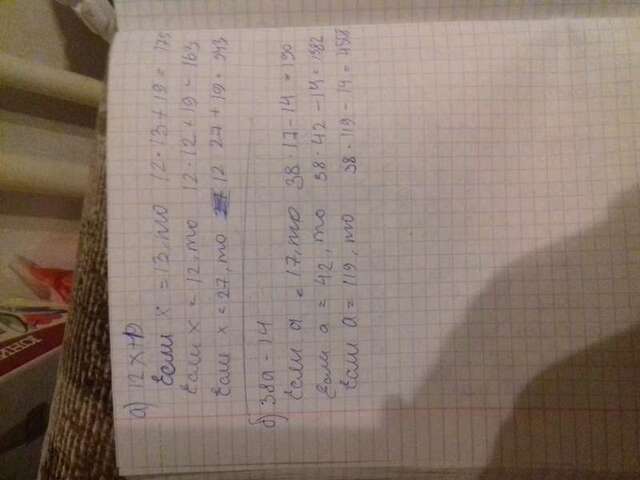 а) 12х+19
Если х = 13, то 12·13+19 = 175
Если х = 12, то 12·12+19 = 163
Если х = 27, то 12 27+19 = 343
б) 38а - 14
Если а = 17, то 38·17-14 =
Если а = 42, то 38·42-14 = 1582
Если а = 119, то 38·119-14 =